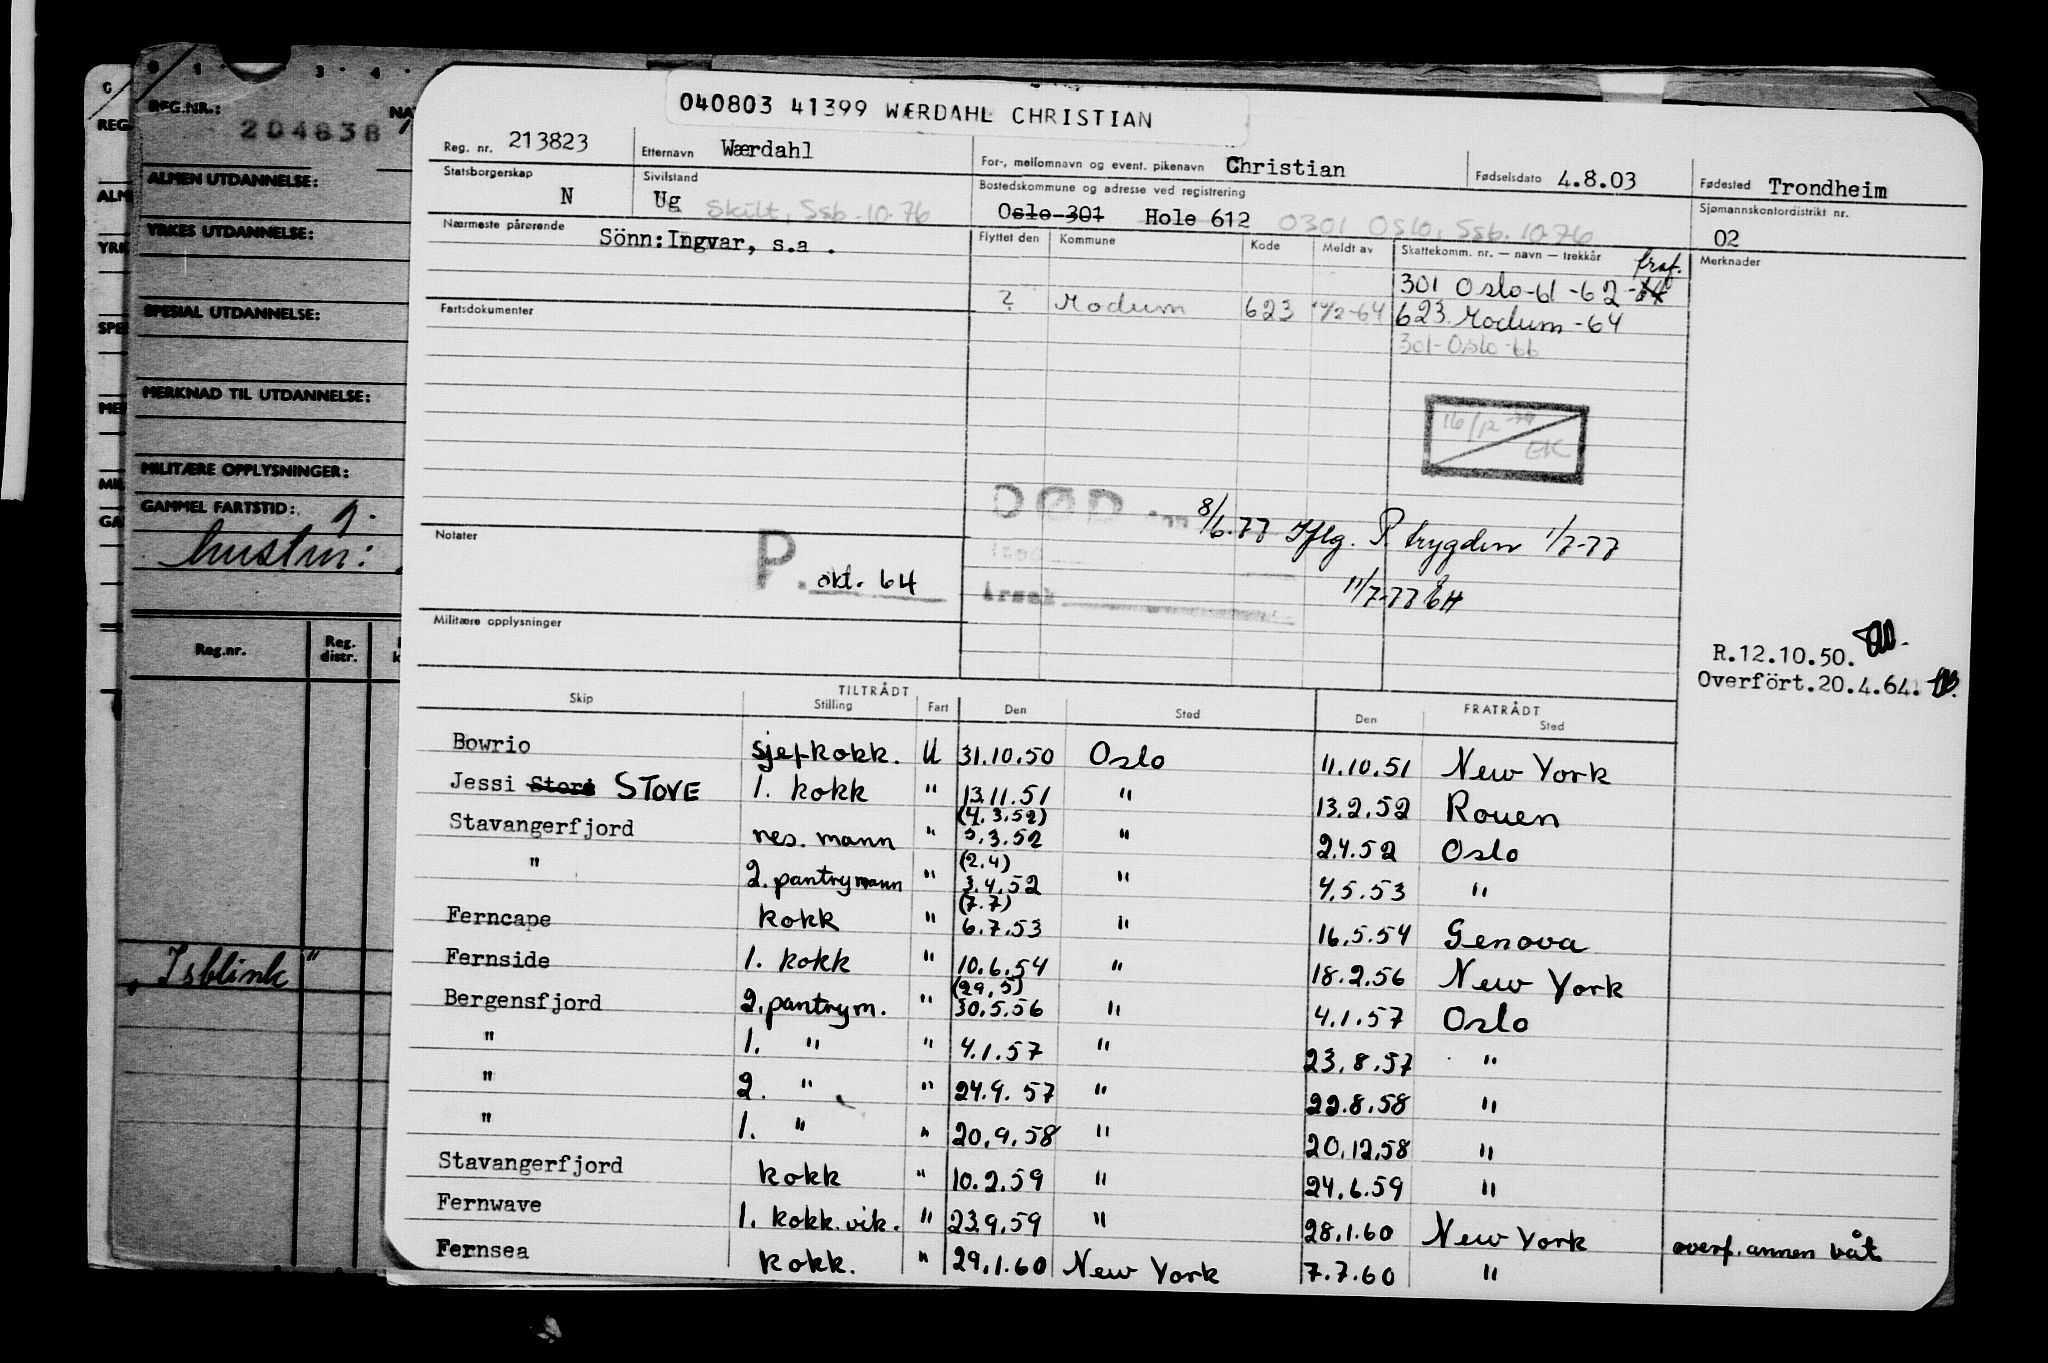 040803 41399 WÆRDAHL CHRISTIAN
Reg. nr. 213823 Etternavn Wærdahl For-, mellomnavn og event. pikenavn Christian Fødselsdato 4.8.03 Fødested Trondheim
Statsborgerskap N Sivilstand Ug Skilt, Ssb. 10.76 Bostedskommune og adresse ved registrering Oslo 301 Hole 612 0301 Oslo, Ssb. 10.76 Sjømannskontordistrikt nr. 02
Nærmeste pårørende Sönn: Ingvar, s.a. Flyttet den Kommune Kode Meldt av Skattekomm. nr. — navn — trekkår Merknader
301 Oslo-61-62
Fartsdokumenter ? Modum 623 623 Modum -64
301-Oslo-66
16/12
EK
DØD 8/6.77 Iflg. P. trygden 1/7-77
Notater P. okt. 64
11/7-77 EH
Militære opplysninger
R.12.10.50.
Overfört.20.4.64.
Skip TILTRÅDT Stilling Fart Den Sted FRATRÅDT Den Sted
Bowrio sjefkokk. U 31.10.50 Oslo 11.10.51 New York
Jessi Stori STOVE 1. kokk " 13.11.51 " 13.2.52 Rouen
(4.3.52)
Stavangerfjord res. mann " 5.3.52 " 2.4.52 Oslo
(2.4)
" 2. pantrymann " 3.4.52 " 4.5.53 "
(7.7)
Ferncape kokk " 6.7.53 " 16.5.54 Genova
Fernside 1. kokk " 10.6.54 " 18.2.56 New York
(29.5)
Bergensfjord 2. pantrym. " 30.5.56 " 4.1.57 Oslo
" 1. " " 4.1.57 " 23.8.57 "
" 2. " " 24.9.57 " 22.8.58 "
" 1. " " 20.9.58 " 20.12.58 "
Stavangerfjord kokk " 10.2.59 " 24.6.59 "
Fernwave 1. kokk. vik. " 23.9.59 " 28.1.60 New York overf. annen båt
Fernsea kokk. " 29.1.60 New York 7.7.60 "
REG.NR.: 204838
ALMEN UTDANNELSE:
YRKES UTDANNELSE:
SPESIAL UTDANNELSE:
MERKNAD TIL UTDANNELSE:
MILITÆRE OPPLYSNINGER:
GAMMEL FARTSTID:
hustru:
Reg.nr. Reg. distr.
"Isblink"